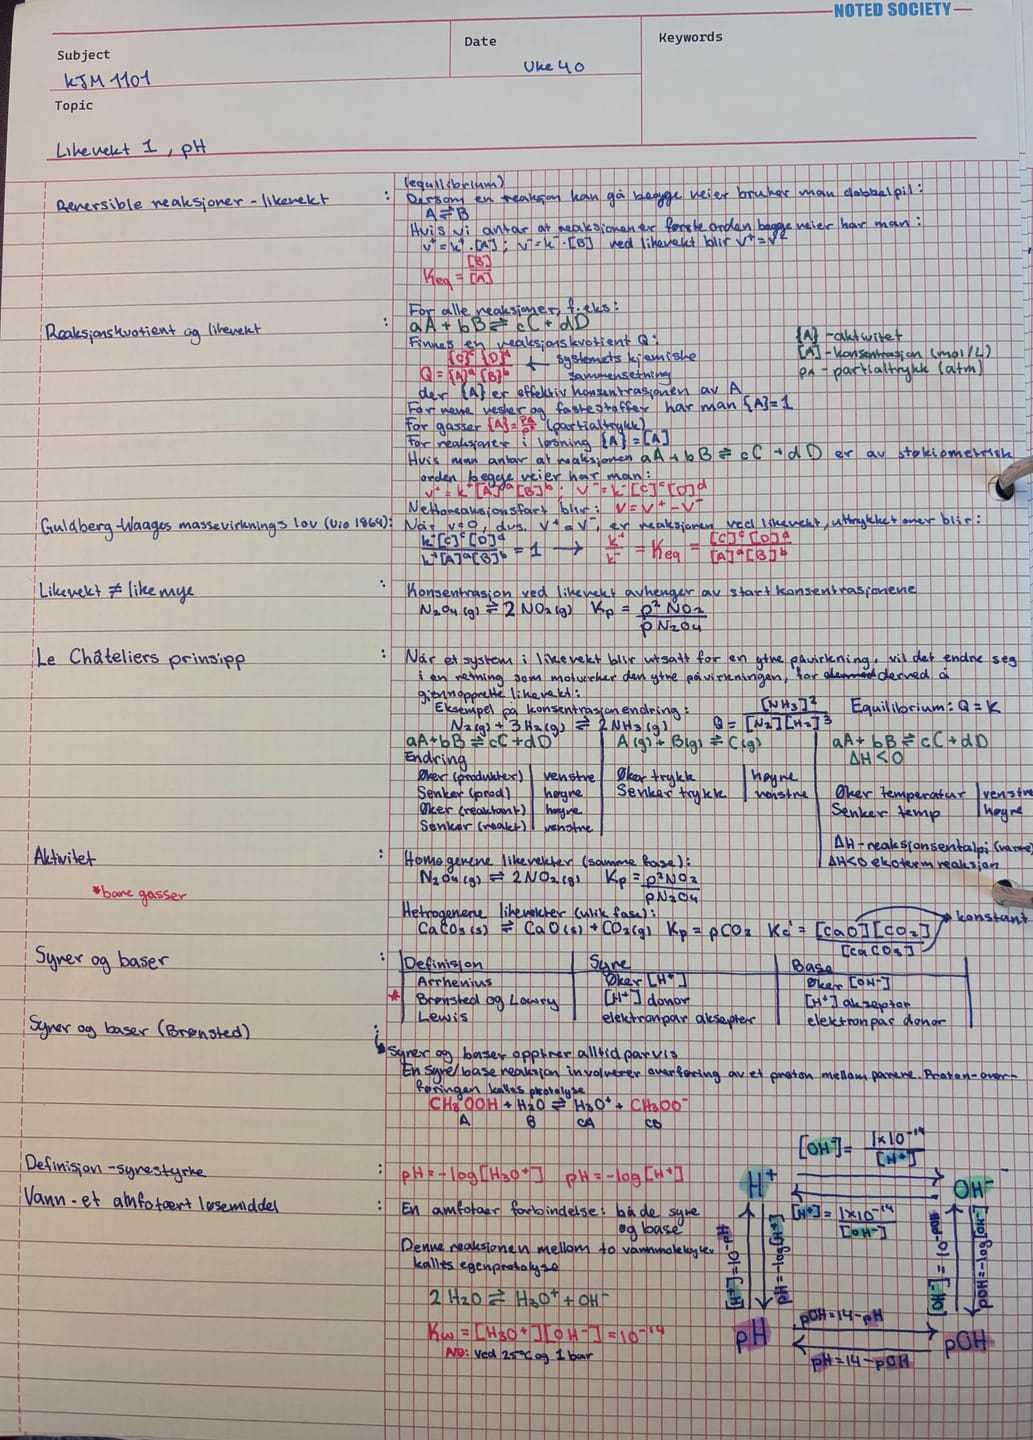 NOTED SOCIETY
Subject
KJM 1101
Date
Uke 40
Keywords
Topic
Likevekt 1, pH
Reversible reaksjoner - likevekt :
(equilibrium)
Dersom en reaksjon kan gå begge veier bruker man dobbelpil:
A ⇌ B
Hvis vi antar at reaksjonen er første orden begge veier har man:
v⁺ = k⁺·[A] ; v⁻ = k⁻·[B] ved likevekt blir v⁺ = v⁻
Keq = [B]/[A]
Reaksjonskvotient og likevekt :
For alle reaksjoner, f.eks:
aA + bB ⇌ cC + dD
Finnes en reaksjonskvotient Q:
Q = {C}ᶜ{D}ᵈ/{A}ᵃ{B}ᵇ ← systemets kjemiske sammensetning
{A} - aktivitet
[A] - konsentrasjon (mol/L)
PA - partialtrykk (atm)
der {A} er effektiv konsentrasjonen av A
For rene vesker og faste stoffer har man {A}=1
For gasser {A}=PA/P° (partialtrykk)
For reaksjoner i løsning {A}=[A]
Hvis man antar at reaksjonen aA + bB ⇌ cC + dD er av støkiometrisk
orden begge veier har man:
v⁺ = k⁺[A]ᵃ[B]ᵇ ; v⁻ = k⁻[C]ᶜ[D]ᵈ
Nettoreaksjonsfart blir: V = V⁺ - V⁻
Guldberg-Waages massevirknings lov (UiO 1864) :
Når v=0, dvs. v⁺ = v⁻, er reaksjonen ved likevekt, uttrykket over blir:
k⁻[C]ᶜ[D]ᵈ/k⁺[A]ᵃ[B]ᵇ = 1 → k⁺/k⁻ = Keq = [C]ᶜ[D]ᵈ/[A]ᵃ[B]ᵇ
Likevekt ≠ like mye :
Konsentrasjon ved likevekt avhenger av start konsentrasjonene
N₂O₄(g) ⇌ 2NO₂(g) Kp = p²NO₂/pN₂O₄
Le Châteliers prinsipp :
Når et system i likevekt blir utsatt for en ytre påvirkning, vil det endre seg
i en retning som motvirker den ytre påvirkningen, for derved å
gjennopprette likevekt:
Eksempel på konsentrasjonendring:
N₂(g) + 3H₂(g) ⇌ 2NH₃(g) Q = [NH₃]²/[N₂][H₂]³ Equilibrium: Q = K
aA+bB ⇌ cC+dD
Endring
Øker (produkter) venstre
Senker (prod) høyre
Øker (reaktant) høyre
Senker (reakt) venstre
A(g) + B(g) ⇌ C(g)
Øker trykk høyre
Senker trykk venstre
aA + bB ⇌ cC + dD
ΔH < 0
Øker temperatur venstre
Senker temp høyre
ΔH - reaksjonsentalpi (varme)
ΔH<0 eksoterm reaksjon
Aktivitet :
*bare gasser
Homogenene likevekter (samme fase):
N₂O₄(g) ⇌ 2NO₂(g) Kp = p²NO₂/pN₂O₄
Hetrogenene likevekter (ulik fase):
CaCO₃(s) ⇌ CaO(s) + CO₂(g) Kp = pCO₂ Kc' = [CaO][CO₂]/[CaCO₃] konstant
Syrer og baser :
Definisjon Syre Base
Arrhenius Øker [H⁺] Øker [OH⁻]
* Brønsted og Lowry [H⁺] donor [H⁺] akseptor
Lewis elektronpar aksepter elektronpar donor
Syrer og baser (Brønsted) :
Syrer og baser opptrer alltid parvis
En syre/base reaksjon involverer overføring av et proton mellom parene. Proton-over-
føringen kalles protolyse
CH₃OOH + H₂O ⇌ H₃O⁺ + CH₃OO⁻
A B CA CB
Definisjon - syrestyrke :
pH = -log[H₃O⁺] pH = -log[H⁺]
Vann - et amfotært løsemiddel :
En amfotær forbindelse: både syre
og base
Denne reaksjonen mellom to vannmolekyler
kalles egenprotolyse
2H₂O ⇌ H₃O⁺ + OH⁻
Kw = [H₃O⁺][OH⁻] = 10⁻¹⁴
NB: ved 25°C og 1 bar
[OH⁻] = 1×10⁻¹⁴/[H⁺]
H⁺ OH⁻
[H⁺] = 1×10⁻¹⁴/[OH⁻]
[H⁺] = 10^-pH
pH = -log[H⁺]
[OH⁻] = 10^-pOH
pOH = -log[OH⁻]
pOH = 14 - pH
pH pOH
pH = 14 - pOH